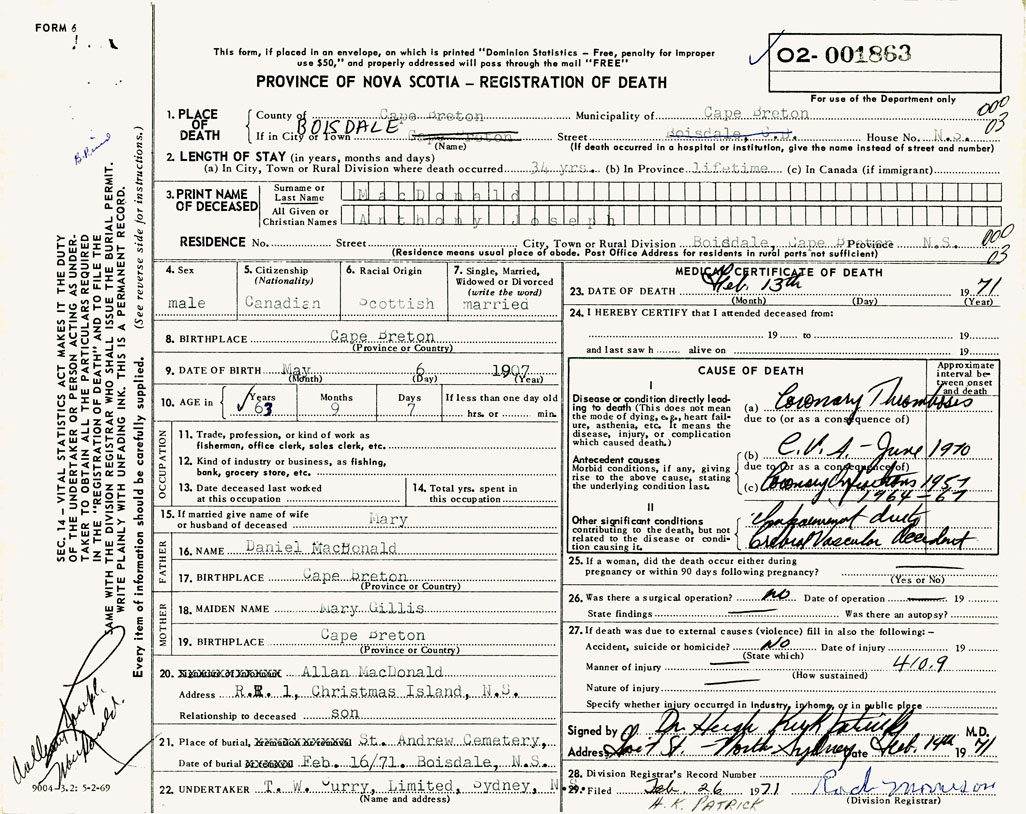 FORM 6
This form, if placed in an envelope, on which is printed "Dominion Statistics – Free, penalty for improper
use $50," and properly addressed will pass through the mail "FREE"
PROVINCE OF NOVA SCOTIA – REGISTRATION OF DEATH
02- 001863
For use of the Department only
1. PLACE OF DEATH
County of Cape Breton Municipality of Cape Breton 000
03
BOISDALE
If in City or Town Cape Breton Street Boisdale, C.B. House No. N.S.
(Name) (If death occurred in a hospital or institution, give the name instead of street and number)
2. LENGTH OF STAY (in years, months and days)
(a) In City, Town or Rural Division where death occurred 34 yrs. (b) In Province lifetime (c) In Canada (if immigrant)
3. PRINT NAME OF DECEASED
Surname or Last Name MacDonald
All Given or Christian Names Anthony Joseph
RESIDENCE No. Street City, Town or Rural Division Boisdale, Cape Breton Province N.S. 000
03
(Residence means usual place of abode. Post Office Address for residents in rural parts not sufficient)
4. Sex
male
5. Citizenship
(Nationality)
Canadian
6. Racial Origin
Scottish
7. Single, Married,
Widowed or Divorced
(write the word)
married
8. BIRTHPLACE Cape Breton
(Province or Country)
9. DATE OF BIRTH May 6 1907
(Month) (Day) (Year)
10. AGE in
Years
63
Months
9
Days
7
If less than one day old
hrs. or min.
OCCUPATION
11. Trade, profession, or kind of work as
fisherman, office clerk, sales clerk, etc.
12. Kind of industry or business, as fishing,
bank, grocery store, etc.
13. Date deceased last worked
at this occupation
14. Total yrs. spent in
this occupation
15. If married give name of wife
or husband of deceased Mary
FATHER
16. NAME Daniel MacDonald
17. BIRTHPLACE Cape Breton
(Province or Country)
MOTHER
18. MAIDEN NAME Mary Gillis
19. BIRTHPLACE Cape Breton
(Province or Country)
20. Allan MacDonald
Address R.R. 1, Christmas Island, N.S.
Relationship to deceased son
21. Place of burial, cremation or removal St. Andrew Cemetery,
Date of burial Feb. 16/71. Boisdale, N.S.
22. UNDERTAKER T. W. Curry, Limited, Sydney, N.S.
(Name and address)
MEDICAL CERTIFICATE OF DEATH
23. DATE OF DEATH Feb. 13th 1971
(Month) (Day) (Year)
24. I HEREBY CERTIFY that I attended deceased from:
19 to 19
and last saw h alive on 19
CAUSE OF DEATH
Approximate
interval be-
tween onset
and death
I
Disease or condition directly lead-
ing to death (This does not mean
the mode of dying, e.g., heart fail-
ure, asthenia, etc. It means the
disease, injury, or complication
which caused death.)
(a) Coronary Thrombosis
due to (or as a consequence of)
Antecedent causes
Morbid conditions, if any, giving
rise to the above cause, stating
the underlying condition last.
(b) C.V.A - June 1970
due to (or as a consequence of)
(c) Coronary Infarctions 1957
1964-67
II
Other significant conditions
contributing to the death, but not
related to the disease or condi-
tion causing it.
due to
Vascular Accident
25. If a woman, did the death occur either during
pregnancy or within 90 days following pregnancy?
(Yes or No)
26. Was there a surgical operation? no Date of operation 19
State findings Was there an autopsy?
27. If death was due to external causes (violence) fill in also the following:–
Accident, suicide or homicide? NO Date of injury 19
(State which)
Manner of injury 410.9
(How sustained)
Nature of injury
Specify whether injury occurred in industry, in home, or in public place
Signed by Dr. Hugh M.D.
Address St - North Sydney Date Feb. 14th 1971
28. Division Registrar's Record Number
29. Filed Feb. 26 1971 Rod Morrison
H.K. PATRICK (Division Registrar)
SEC. 14 – VITAL STATISTICS ACT MAKES IT THE DUTY
OF THE UNDERTAKER OR PERSON ACTING AS UNDER-
TAKER TO OBTAIN ALL THE PARTICULARS REQUIRED
IN THE "REGISTRATION OF DEATH" AND TO FILE THE
SAME WITH THE DIVISION REGISTRAR WHO SHALL ISSUE THE BURIAL PERMIT.
WRITE PLAINLY WITH UNFADING INK. THIS IS A PERMANENT RECORD.
Every item of information should be carefully supplied. (See reverse side for instructions.)
Joseph
MacDonald.
9004-3.2: 5-2-69